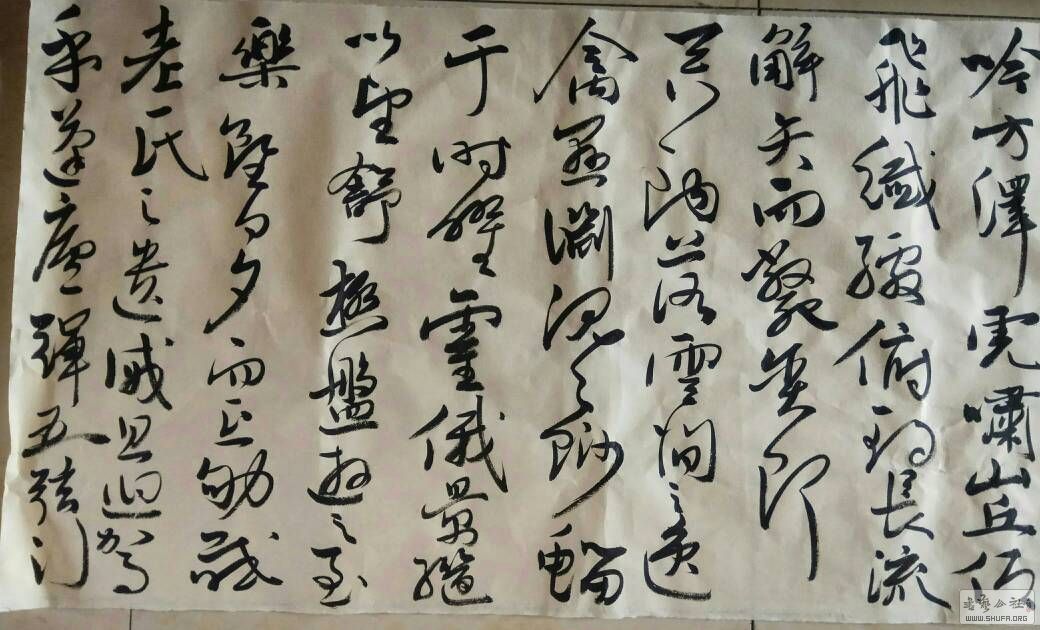 吟方澤虎嘯山丘仰
飛纖繳俯釣長流
觸矢而斃貪餌
吞鉤落雲間之逸
禽懸淵沉之魦鰡
于時曜靈俄景繼
以望舒極盤遊之至
樂雖日夕而忘劬感
老氏之遺誡且迴駕
乎蓬廬彈五弦
書藝公社
WWW.SHUFA.ORG